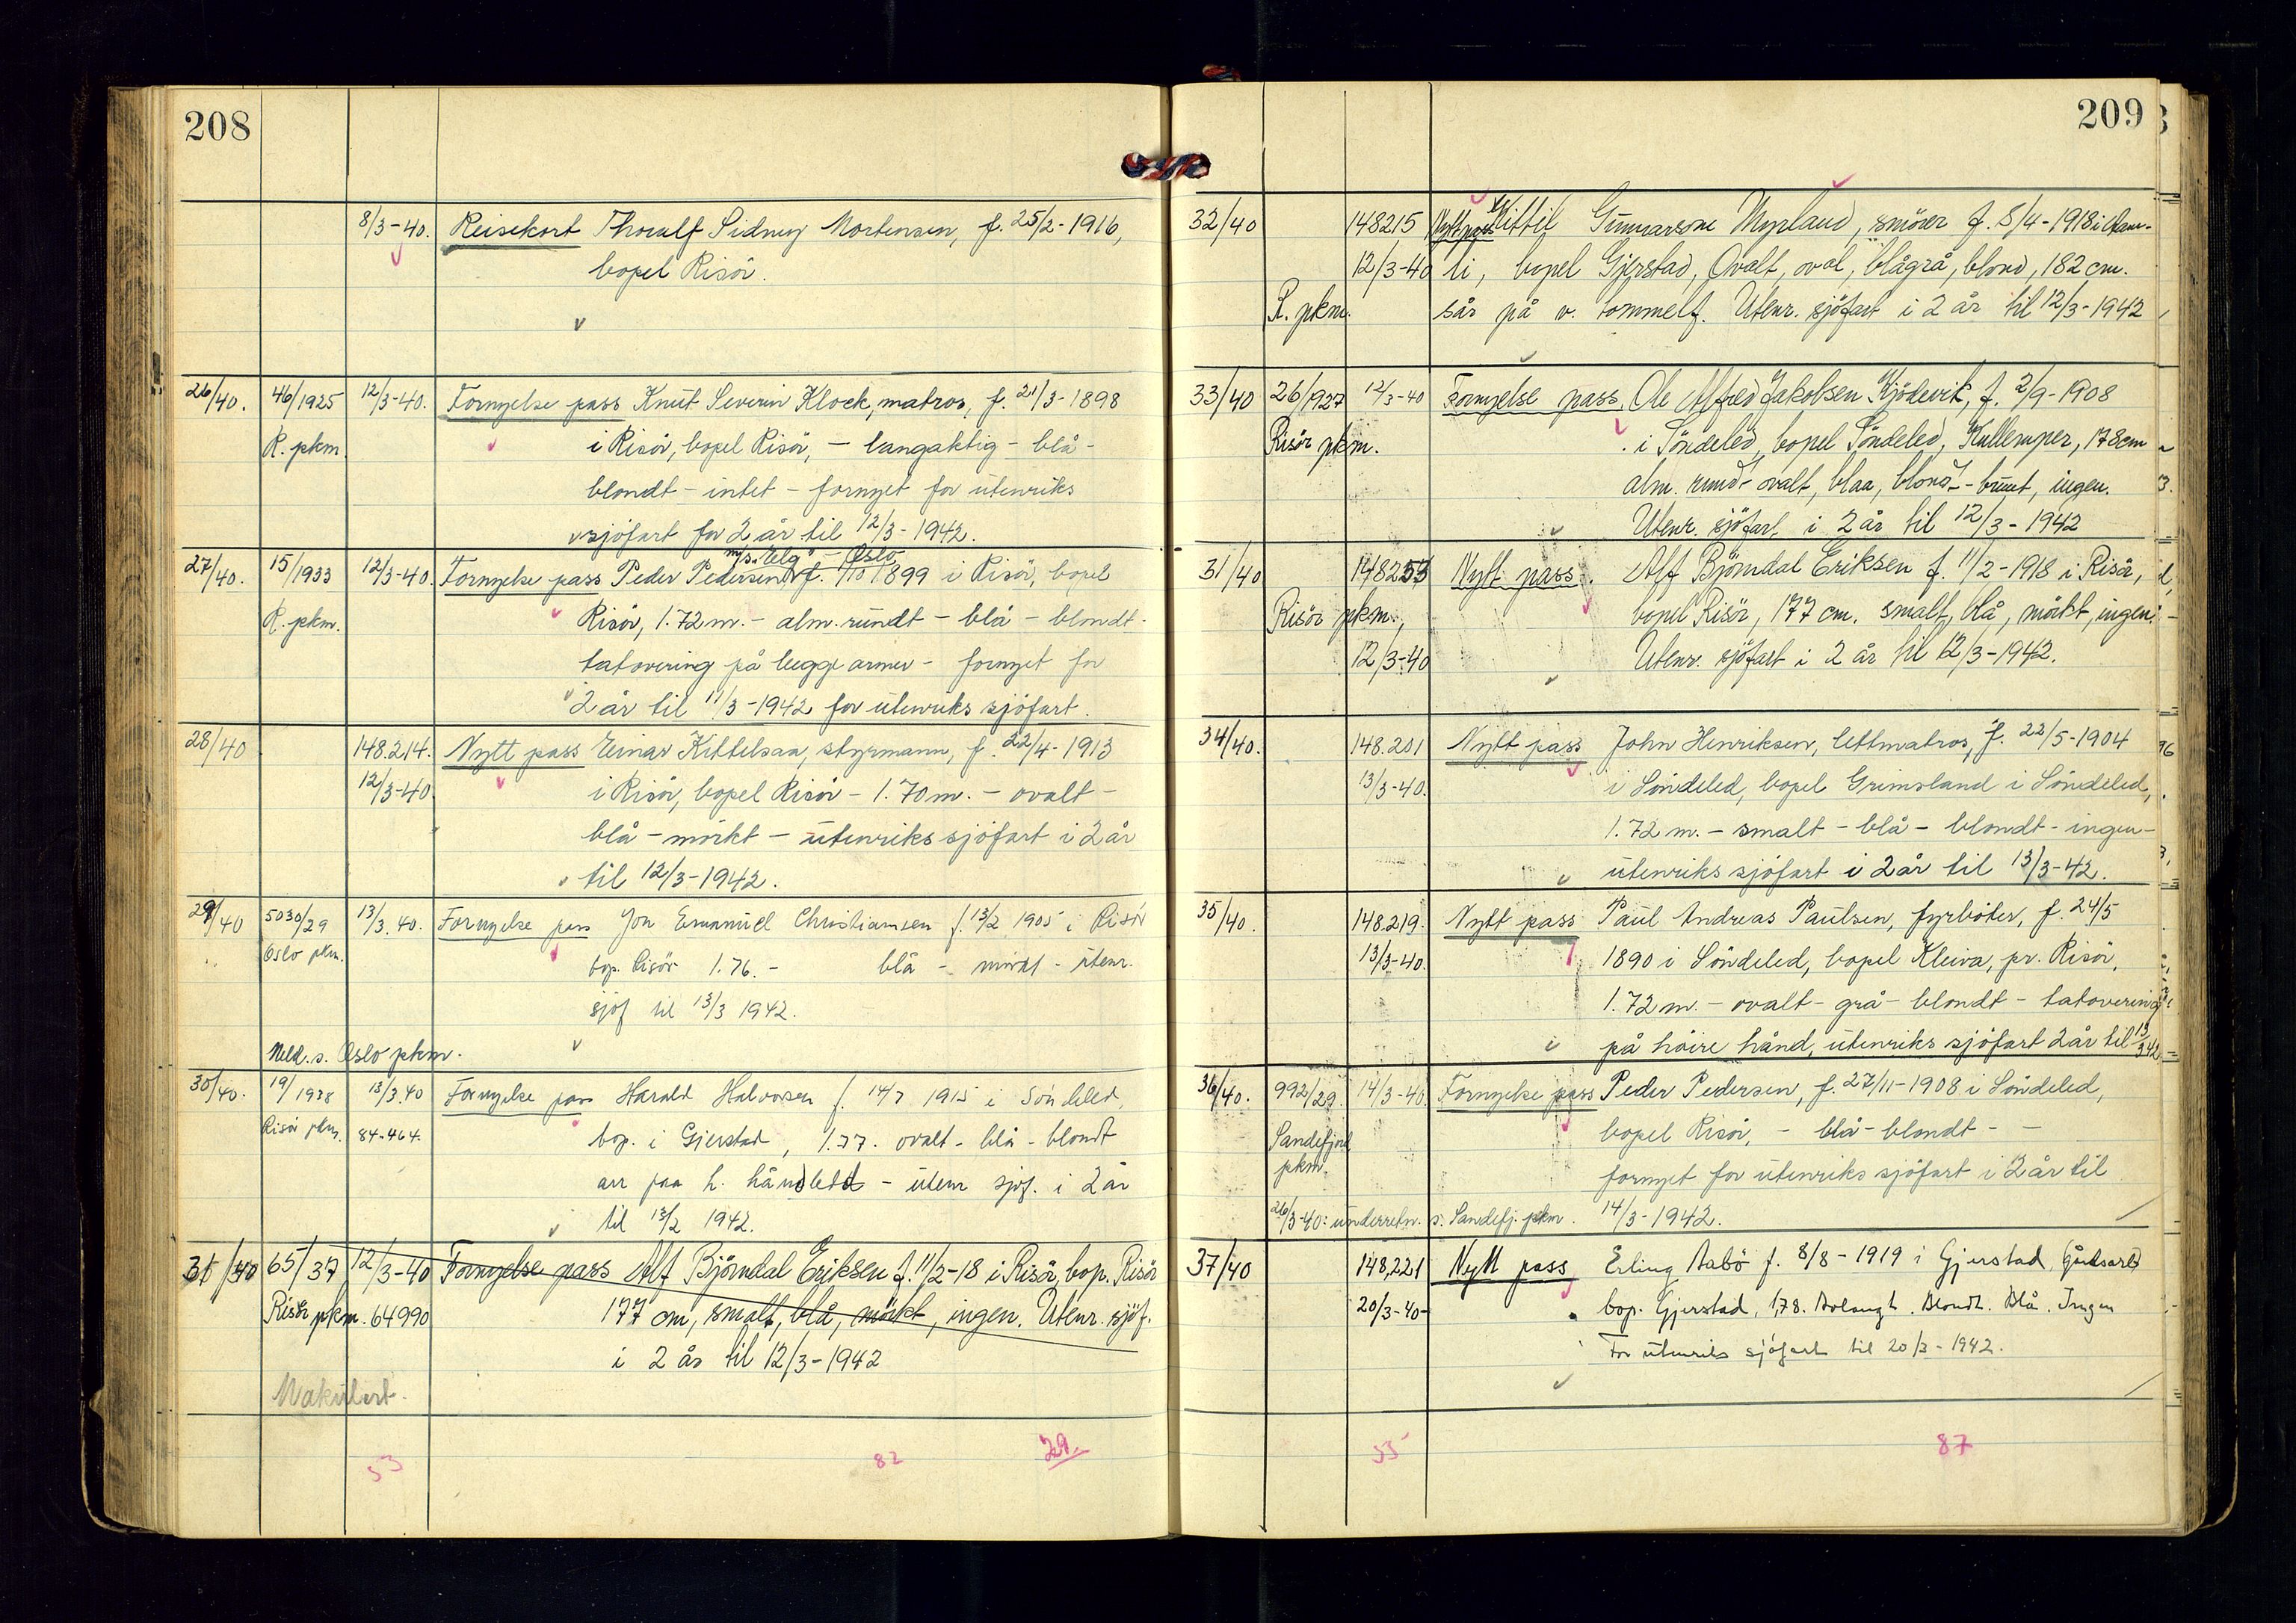 208
8/3-40. Reisekort Thorulf Sidney Mortensen, f. 25/2-1916,
bopel Risör.
26/40. 46/1925 12/3-40. Fornyelse pass Knut Severin Klock, matros, f. 21/3-1898
R. pkm. i Risör, bopel Risör, - langaktig - blå -
blondt - intet - fornyet for utenriks
sjöfart for 2 år til 12/3-1942.
m/s. "Elg" - Oslo
27/40. 15/1933 12/3-40. Fornyelse pass Peder Pedersen f. 1/10 1899 i Risör, bopel
R. pkm. Risör, 1.72 m. - alm. rundt - blå - blondt -
tatovering på begge armer - fornyet for
2 år til 11/3-1942 for utenriks sjöfart.
28/40 148.214. Nytt pass Einar Kittelsaa, styrmann, f. 22/4-1913
12/3-40. i Risör, bopel Risör - 1.70 m. - ovalt -
blå - mörkt - utenriks sjöfart i 2 år
til 12/3-1942.
29/40 5030/29 13/3.40. Fornyelse pass Jon Emanuel Christiansen f. 13/2 1905 i Risör
Oslo pkm. bop. Risör 1.76. - blå - mörkt - utenr.
sjöf til 13/3 1942.
Meld. s. Oslo pkm.
30/40. 19/1938 13/3.40 Fornyelse pass Harald Halvorsen f. 14/7 1915 i Söndeled,
Risör pkm. 84-464. bop. i Gjerstad, 1.77. ovalt - blå - blondt
arr paa h. håndledd - utenr sjöf. i 2 år
til 13/2 1942.
31/40 65/37 12/3-40 Fornyelse pass Alf Björndal Eriksen f. 11/2-18 i Risör, bop. Risör
Risör pkm. 64990 177 cm, smalt, blå, mörkt, ingen. Utenr. sjöf.
i 2 år til 12/3-1942
Makulert.
53 82 29
209
32/40 148215 Nytt pass Kittil Gunnarsone Myrland, f. 8/4-1918 i
12/3-40 li, bopel Gjerstad, Ovalt, oval, blågrå, blond, 182 cm.
R. pkm. sår på v. tommelf. Utenr. sjöfart i 2 år til 12/3-1942
33/40 26/927 12/3-40 Fornyelse pass, Ole Alfred Jakobsen Kjödevik, f. 2/9-1908
Risör pkm. i Söndeled, bopel Söndeled, Kullemper, 178 cm
alm. rund - ovalt, blaa, blond - brunt, ingen.
Utenr. sjöfart i 2 år til 12/3-1942
31/40 148253 Nytt pass. Alf Björndal Eriksen f. 11/2-1918 i Risör,
Risör pkm., bopel Risör, 177 cm. smalt, blå, mörkt, ingen.
12/3-40 Utenr. sjöfart i 2 år til 12/3-1942.
34/40. 148.201 Nytt pass John Henriksen, lettmatros, f. 22/5-1904
13/3-40. i Söndeled, bopel Grimsland i Söndeled,
1.72 m. - smalt - blå - blondt - ingen -
utenriks sjöfart i 2 år til 13/3-42.
35/40. 148.219. Nytt pass Paul Andreas Paulsen, fyrböter, f. 24/5
13/3-40. 1890 i Söndeled, bopel Kleiva, pr. Risör,
1.72 m. - ovalt - grå - blondt - tatovering
på höire hånd, utenriks sjöfart 2 år til 13/3 42
36/40. 992/29 14/3-40. Fornyelse pass Peder Pedersen, f. 27/11-1908 i Söndeled,
Sandefjord bopel Risör, - blå - blondt - -
pkm. fornyet for utenriks sjöfart i 2 år til
26/3-40: underretn. s. Sandefj. pkm. 14/3-1942.
37/40 148,221 Nytt pass Erling Aabö f. 8/8-1919 i Gjerstad, Gårdsarb
20/3-40- bop. Gjerstad, 1,78. Avlangt. Blondt. Blå. Ingen
For utenriks sjöfart til 20/3-1942.
55 87